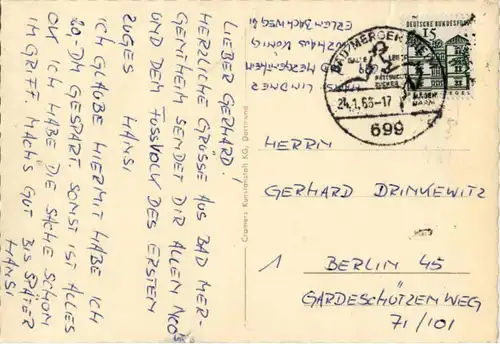 LIEBER GERHARD!
HERZLICHE GRÜSSE AUS BAD MER-
GENTHEIM SENDET DIR ALLEN
UND DEM FUSSVOLK DES ERSTEN
ZUGES HANSI
ICH GLAUBE HIERMIT HABE ICH
20,-DM GESPART. SONST IST ALLES
OK ICH HABE DIE SACHE SCHON
IM GRIFF. MACHS GUT BIS SPÄTER
HANSI
Cramers Kunstanstalt KG, Dortmund
LINDNER
MERGENTHEIM
KURHAUS KÖNIG
ERLENBACHWEG 21
BAD MERGENTHEIM
24.1.66-17
699
DEUTSCHE BUNDESPOST
15
TEGEL
HERRN
GERHARD DRINKEWITZ
1 BERLIN 45
GARDESCHÜTZENWEG
71/101